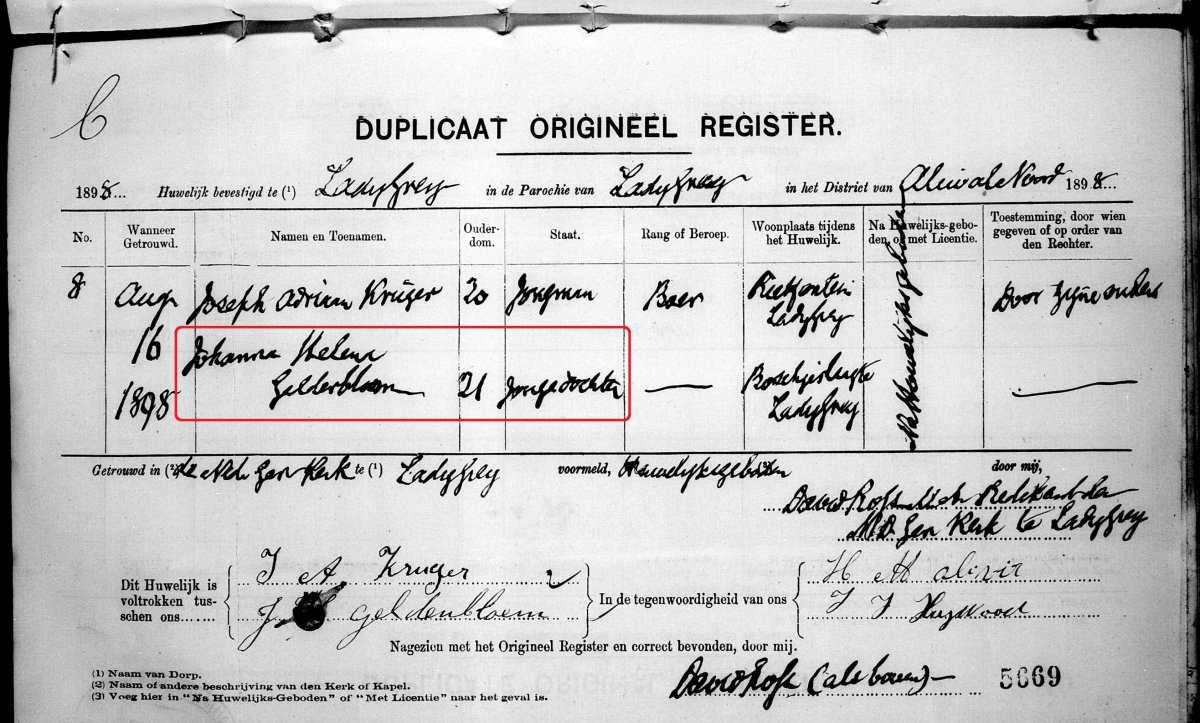 C
DUPLICAAT ORIGINEEL REGISTER.
1898... Huwelijk bevestigd te (¹) LadyGrey in de Parochie van LadyGrey in het District van Aliwal Noord 1898...
No. Wanneer Getrouwd. Namen en Toenamen. Ouder-dom. Staat. Rang of Beroep. Woonplaats tijdens het Huwelijk. Na Huwelijks-gebo-den, of met Licentie. Toestemming, door wien gegeven of op order van den Rechter.
8 Aug Joseph Adrian Kruger 20 Jongman Boer Rietfontein LadyGrey Door zijne ouders
16 Johanna Helena
Gelderbloem 21 Jongedochter — LadyGrey —
1898
Na Houwelijksgeboden
Getrouwd in (²) de Ned Ger Kerk te (¹) LadyGrey voormeld, Huwelijksgeboden door mij,
David Ross
Ger Kerk te LadyGrey
Dit Huwelijk is voltrokken tus-schen ons......
J A Kruger
J Geldenbloem
In de tegenwoordigheid van ons
H M
J J
Nagezien met het Origineel Register en correct bevonden, door mij.
David Ross 5669
(1) Naam van Dorp.
(2) Naam of andere beschrijving van den Kerk of Kapel.
(3) Voeg hier in "Na Huwelijks-Geboden" of "Met Licentie" naar het geval is.